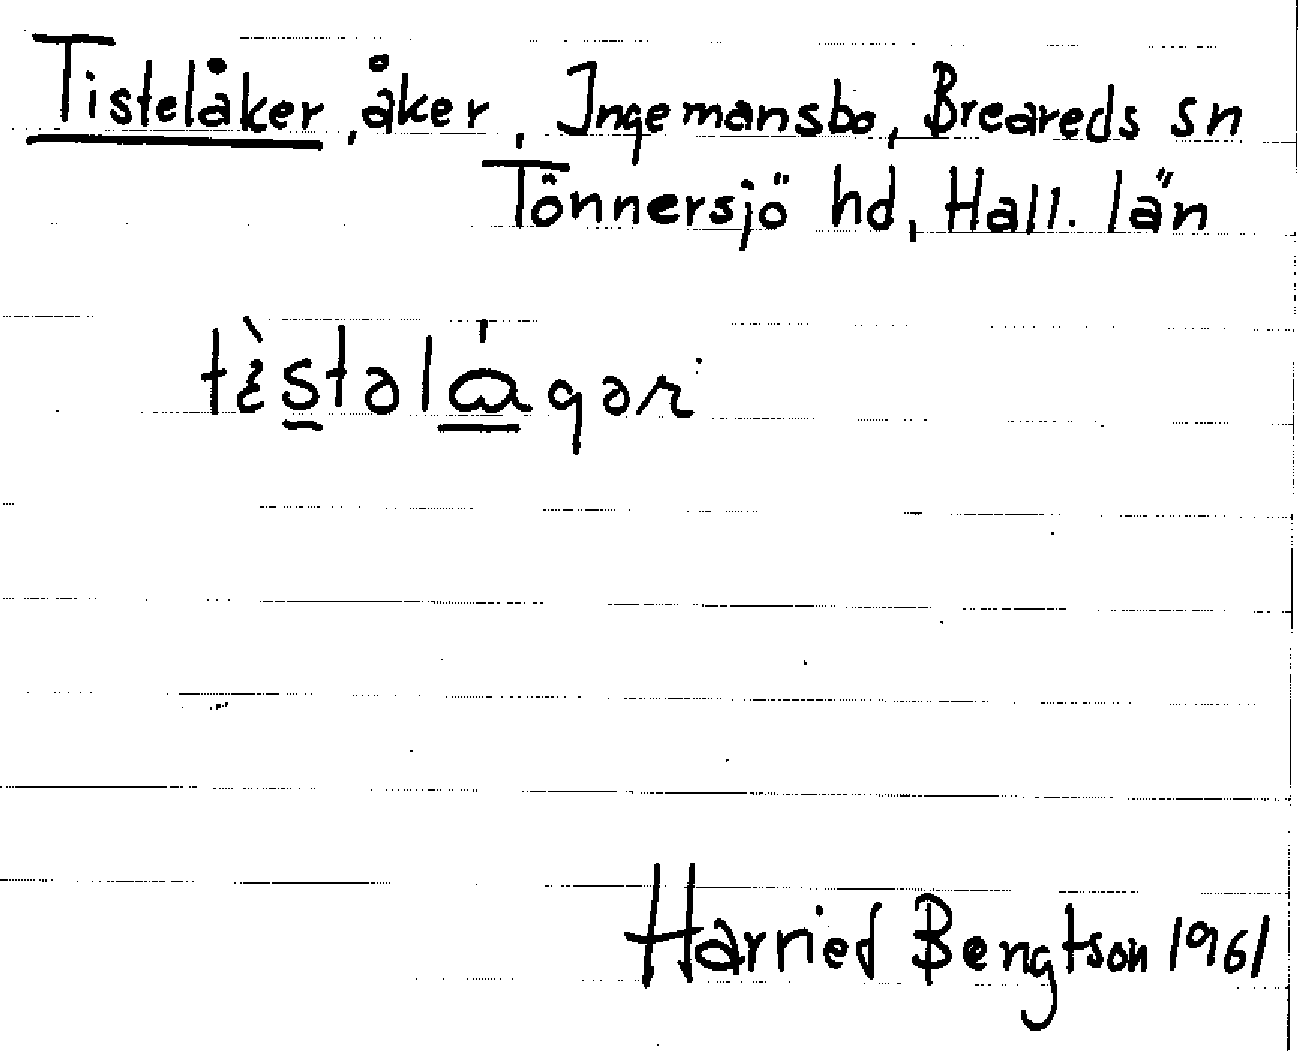 Tistelåker, åker, Ingemansbo, Breareds sn
Tönnersjö hd, Hall. län
Harried Bengtson 1961